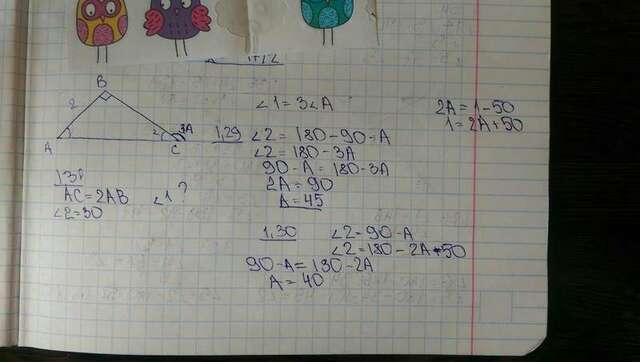 B
2
A
2
3A
C
∠1 = 3∠A
1.29
∠2 = 180 - 90 - A
∠2 = 180 - 3A
90 - A = 180 - 3A
2A = 90
A = 45
2A = 1 - 50
1 = 2A + 50
AC = 2AB
∠1?
∠2 = 30
1.30
∠2 = 90 - A
∠2 = 180 - 2A - 50
90 - A = 130 - 2A
A = 40